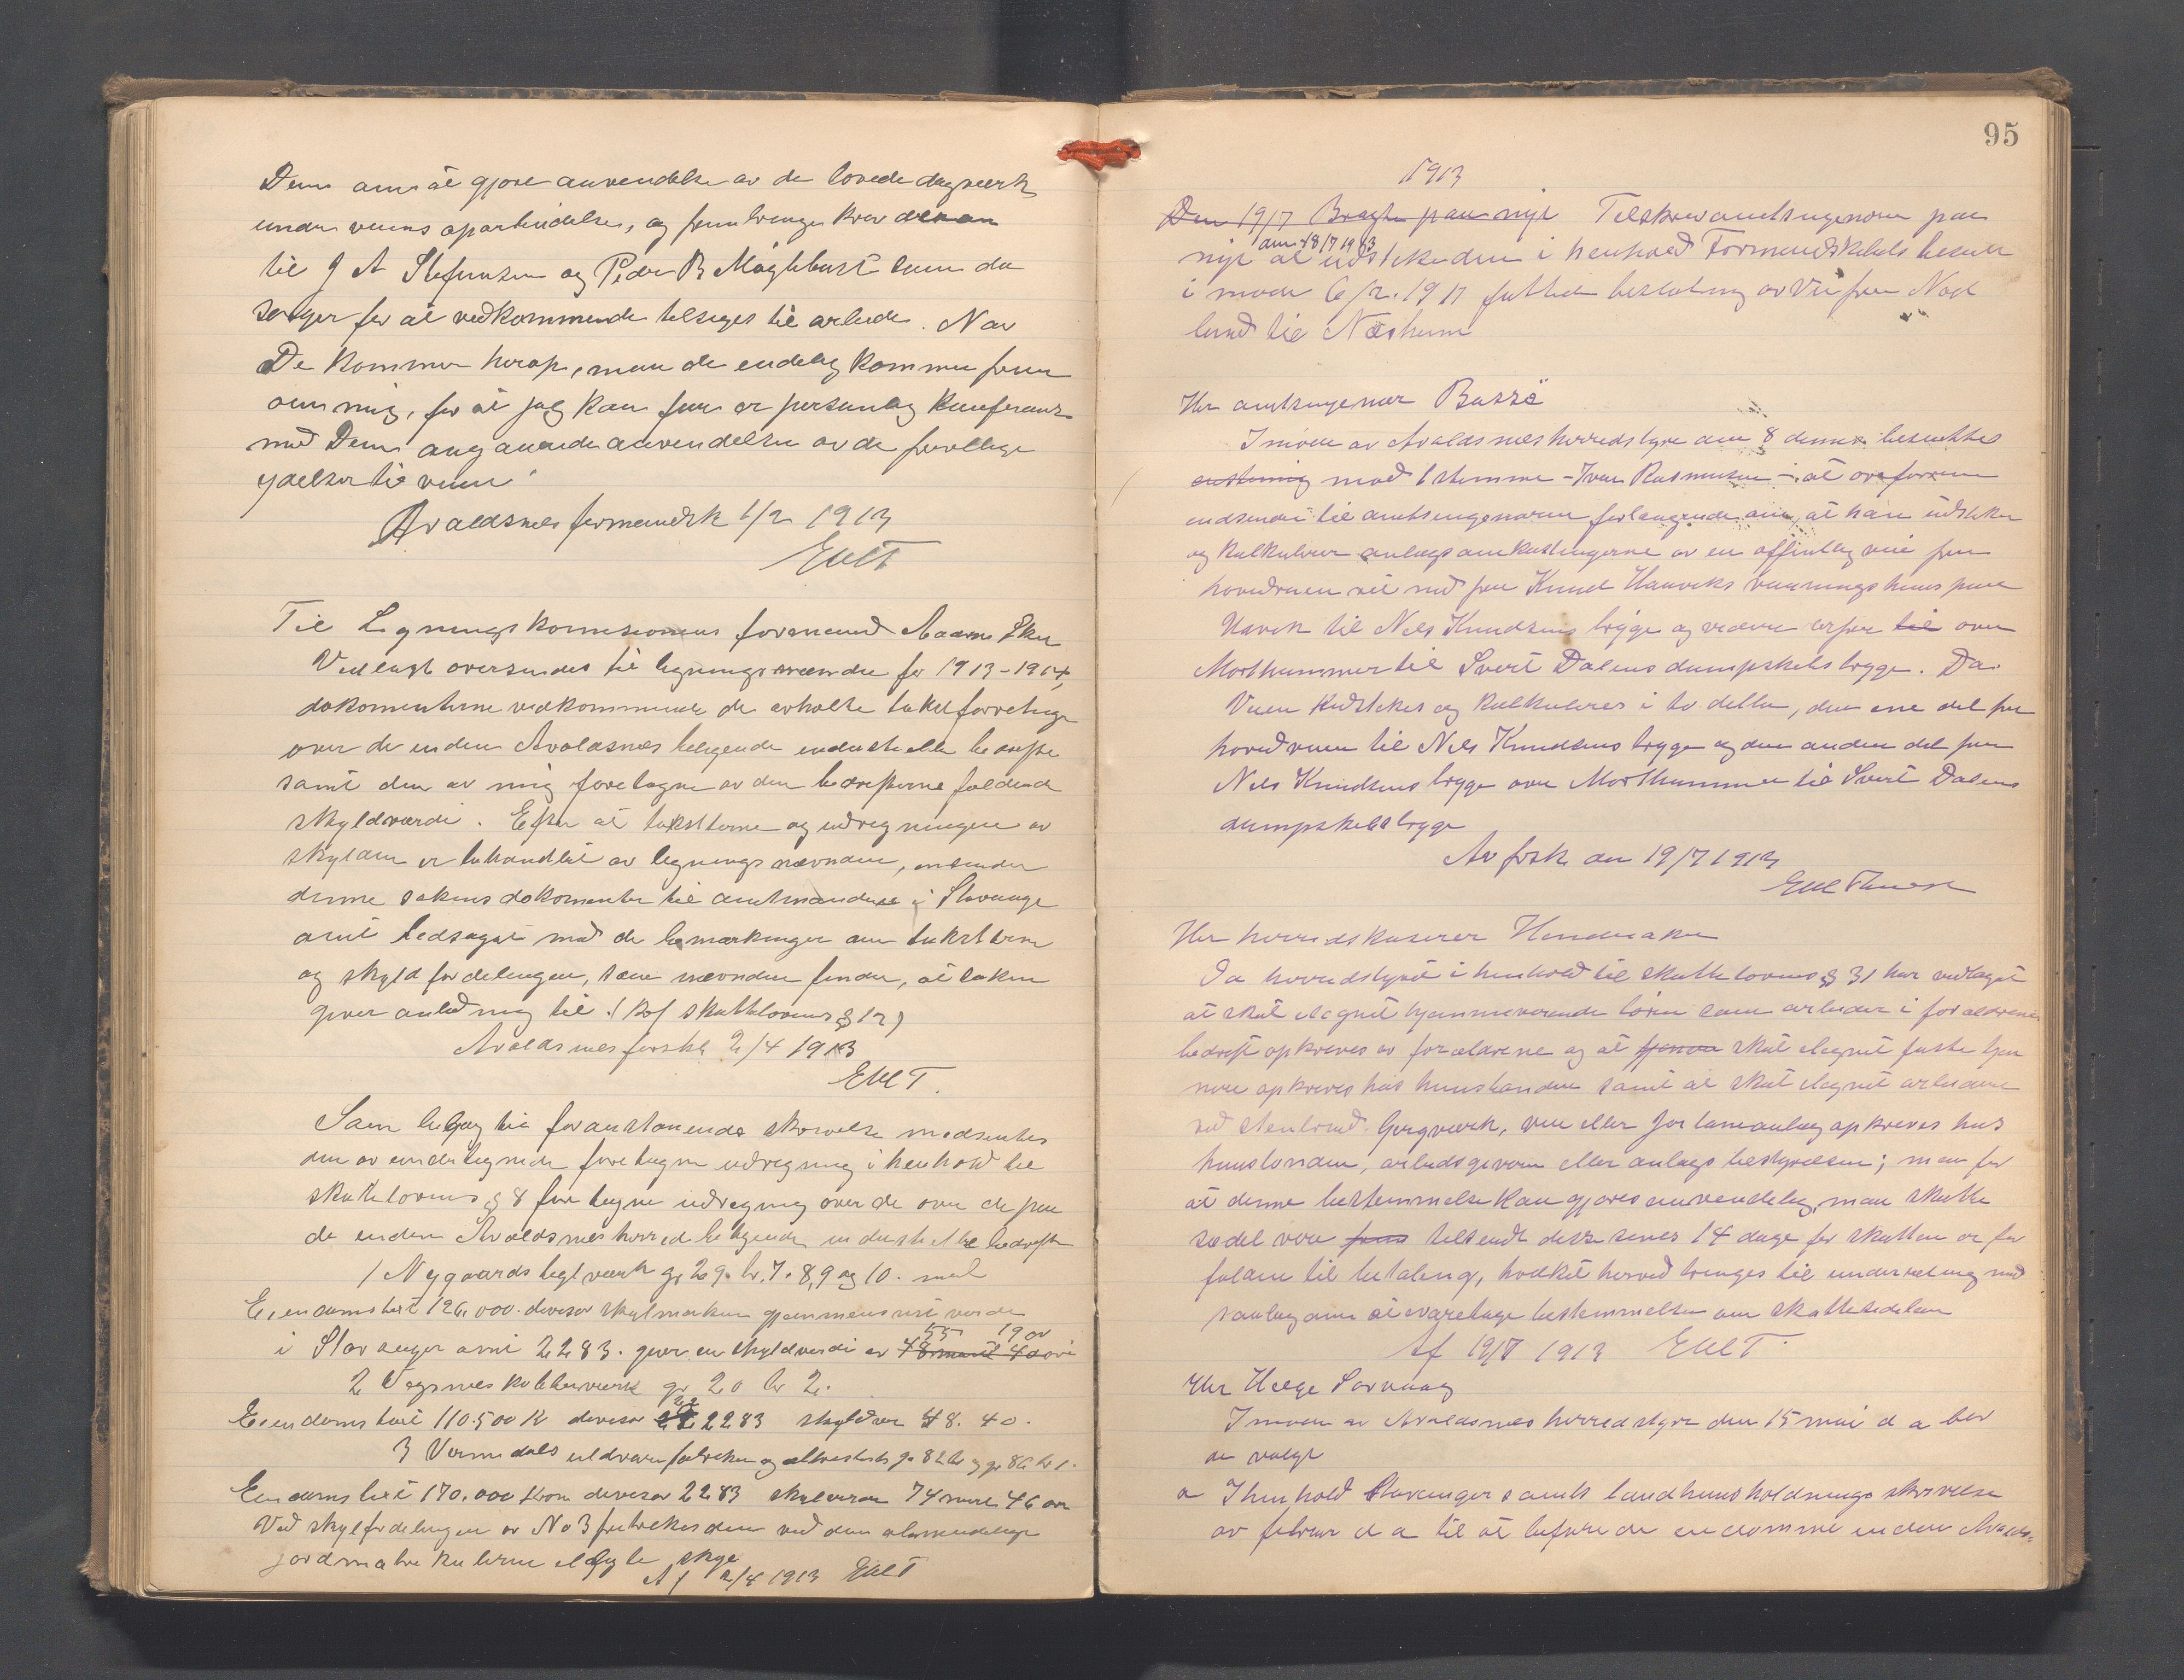 Dem om at gjøre anvendelse av de lovede dagverk
under veiens oparbeidelse, og frembringe krav derom
til J A Stefensen og Peder B Møglebust som da
sørger for at vedkommende tilsiges til arbeide. Naar
De kommer herop, maa de endelig komme frem
om mig, for at jeg kan faa en personlig konferanse
med Dem angaaende anvendelsen av de frivillige
ydelser til veien
Avaldsnes formandsk 1/2 1913
EMT
Til Ligningskommisionens formand
Vedlagt oversendes til ligningsnævnden for 1913-1914,
dokumenterne vedkommende de avholte takstforretninger
over de inden Avaldsnes beligende industrielle bedrifter
samt den av mig foretagne av den bedrifterne faldende
skyldværdi. Efter at taksterne og utregningen av
skylden er behandlet av ligningsnævnden, insender
denne sakens dokumenter til amtmanden i Stavanger
amt ledsaget med de bemærkninger om taksterne
og skyldfordelingen, som nævnden finder, at saken
giver anledning til. (kof skattelovens § 12)
Avaldsnes forskb 2/4 1913
EMT.
Som bilag til foranstaaende skrivelse medsendes
den av undertegnede foretagne utregning i henhold til
skattelovens § 8 foretagne utregning over de over de paa
de inden Avaldsnes herred beligende industrielle bedrifter
1 Nygaards teglverk gr 29. br. 7. 8, 9 og 10. med
Eiendomstakst 126.000. divisor skylmarken gjennemsnitsverdi
55 19 øre
i Stavanger amt 2283. giver en skyldverdi av 48 mark 40 øre
2 Vigsnes kobberverk gr 20 br 2.
Eiendomstakst 110.500 K divisor 2283 skyldver 48. 40.
3
Eiendomstakst 170.000 kron divisor 2283 skylverdi 74 mark 46 øre
Ved skylfordelingen av No 3 fratrekkes den ved den almindelige
jordmatrikulering skyl
Af 2/4 1913 EMT
95
1913
Den 19/7 Bragte paa nyt Tilskrev amtsingeniøren paa
den 18/7 1913
nyt at utstikke den i henhold Formandskabets beslut
i møde 6/2. 1911 fattede beslutning av Vei fra Nord
lund til Næsheim
Hr amtsingeniør Bassøe
I møte av Avaldsnes herredstyre den 8 dennes besluttedes
enstemig mod 1 stemme - Iver Rasmusen - at
indsende til amtsingeniøren forlangende om, at han utstikker
og kalkulerer anlægsomkostningerne av en offentlig vei fra
hovedveien ret ned for Knud Haaviks vaaningshus paa
Havik til Nels Knudsens brygge og videre derfra til over
Morthammer til Svert Dalens dampskibs brygge. Da
Veien utstikkes og kalkuleres i to deller, den ene del fra
hovedveien til Nels Knudsens brygge og den anden del fra
Nels Knudsens brygge over Morthammer til Svert Dalens
dampskibsbrygge
Av forsk den 19/7 1913
EM Thuesen
Hr herredskaserer
Da herredstyret i henhold til skattelovens § 31 har vedtaget
at skat ilagnet hjemmeværende børn som arbeider i forældrenes
bedrift opkreves av forældrene og at tjenere skat ilagnet faste tjen
nere opkreves hos husbonden samt at skat ilagnet arbeidere
ved stenbrud. bergværk, vei eller jernbaneanlæg opkreves hos
husbonden, arbeidsgiveren eller anlægs bestyrelsen; men for
at denne bestemmelse kan gjøres anvendelig, maa skatte
sædel være tilsendt disse senest 14 dage før skatten er for
falden til betaling, hvilket herved bringes til underretning med
anledning om at ivaretage bestemmelsen om skattesedelen
Af 19/7 1913 EMT.
Hr Helge Sørvaag
I møte av Avaldsnes herredstyre den 15 mai d a blev
de valgt
a I henhold Stavanger amts landhusholdnings skrivelse
av februar d a til at befare de eiendomme inden Avalds=